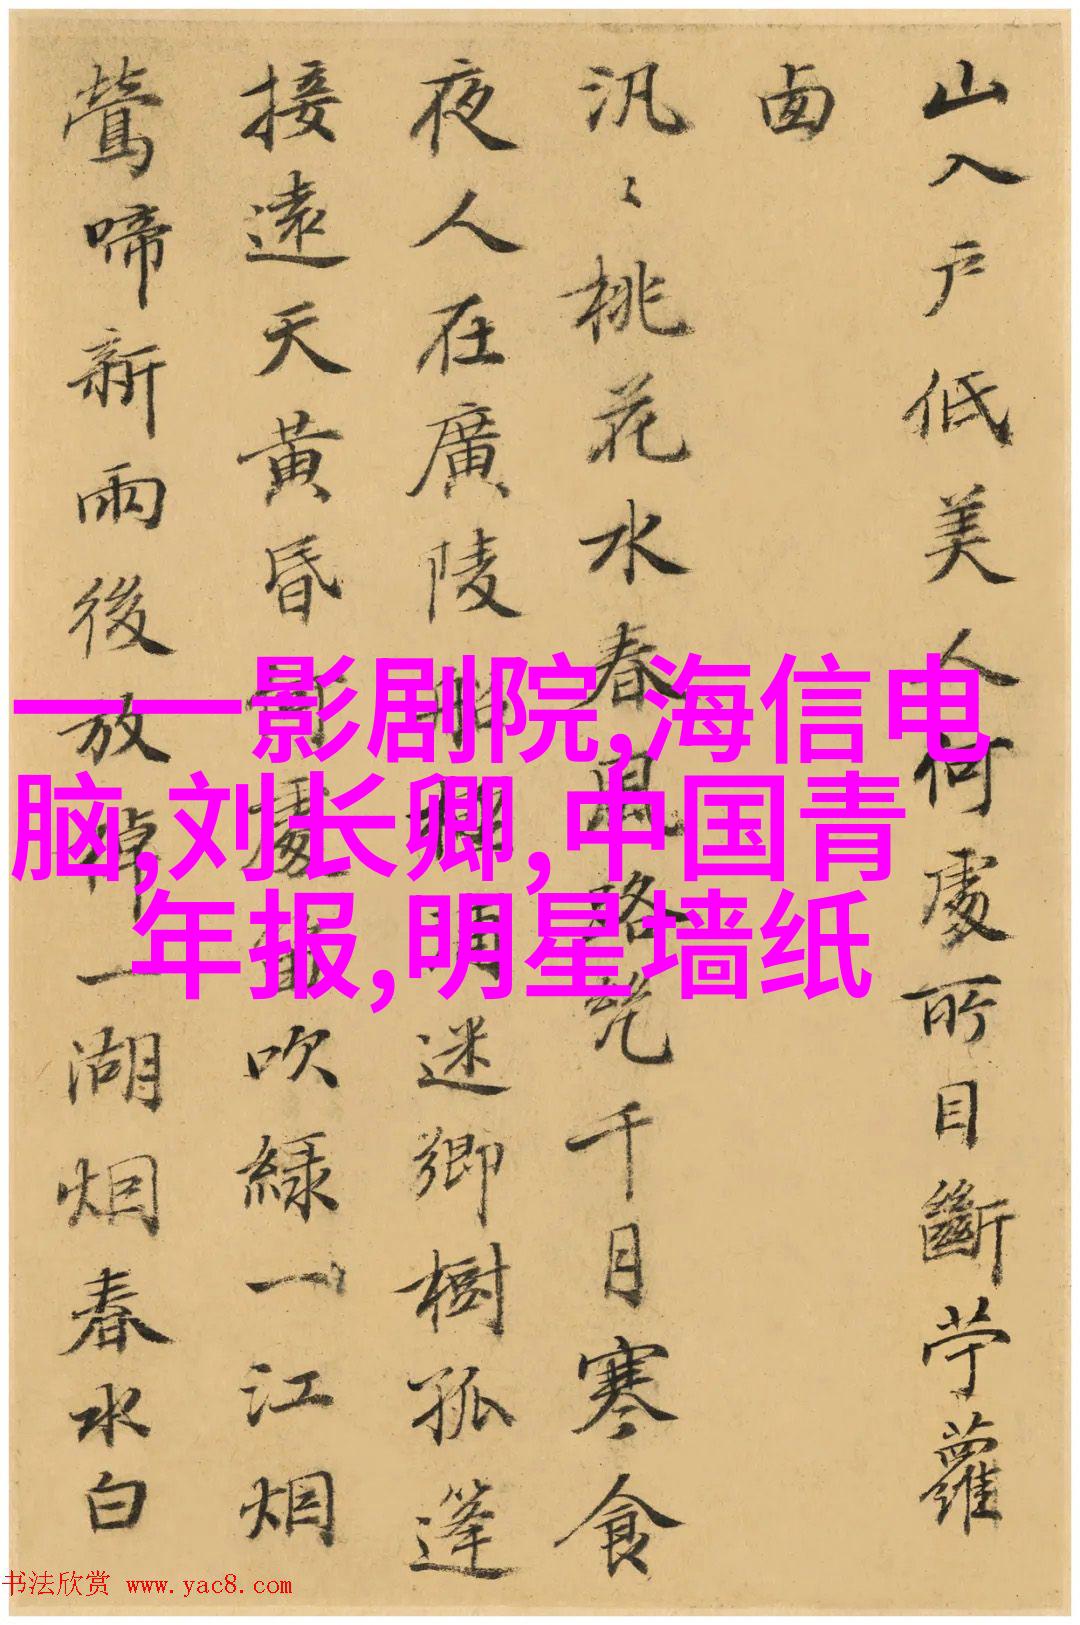 山入户低美人何處所目斷苧蘿
卥
汎〻桃花水春風路千月寒食
夜人在廣陵船迷鄉樹孤篷
接遠天黃昏處吹綠一江烟
鶯啼新雨後放棹一湖烟春水白
——影剧院,海信电
脑,刘长卿,中国青
年报,明星墙纸
书法欣赏 www.yac8.com